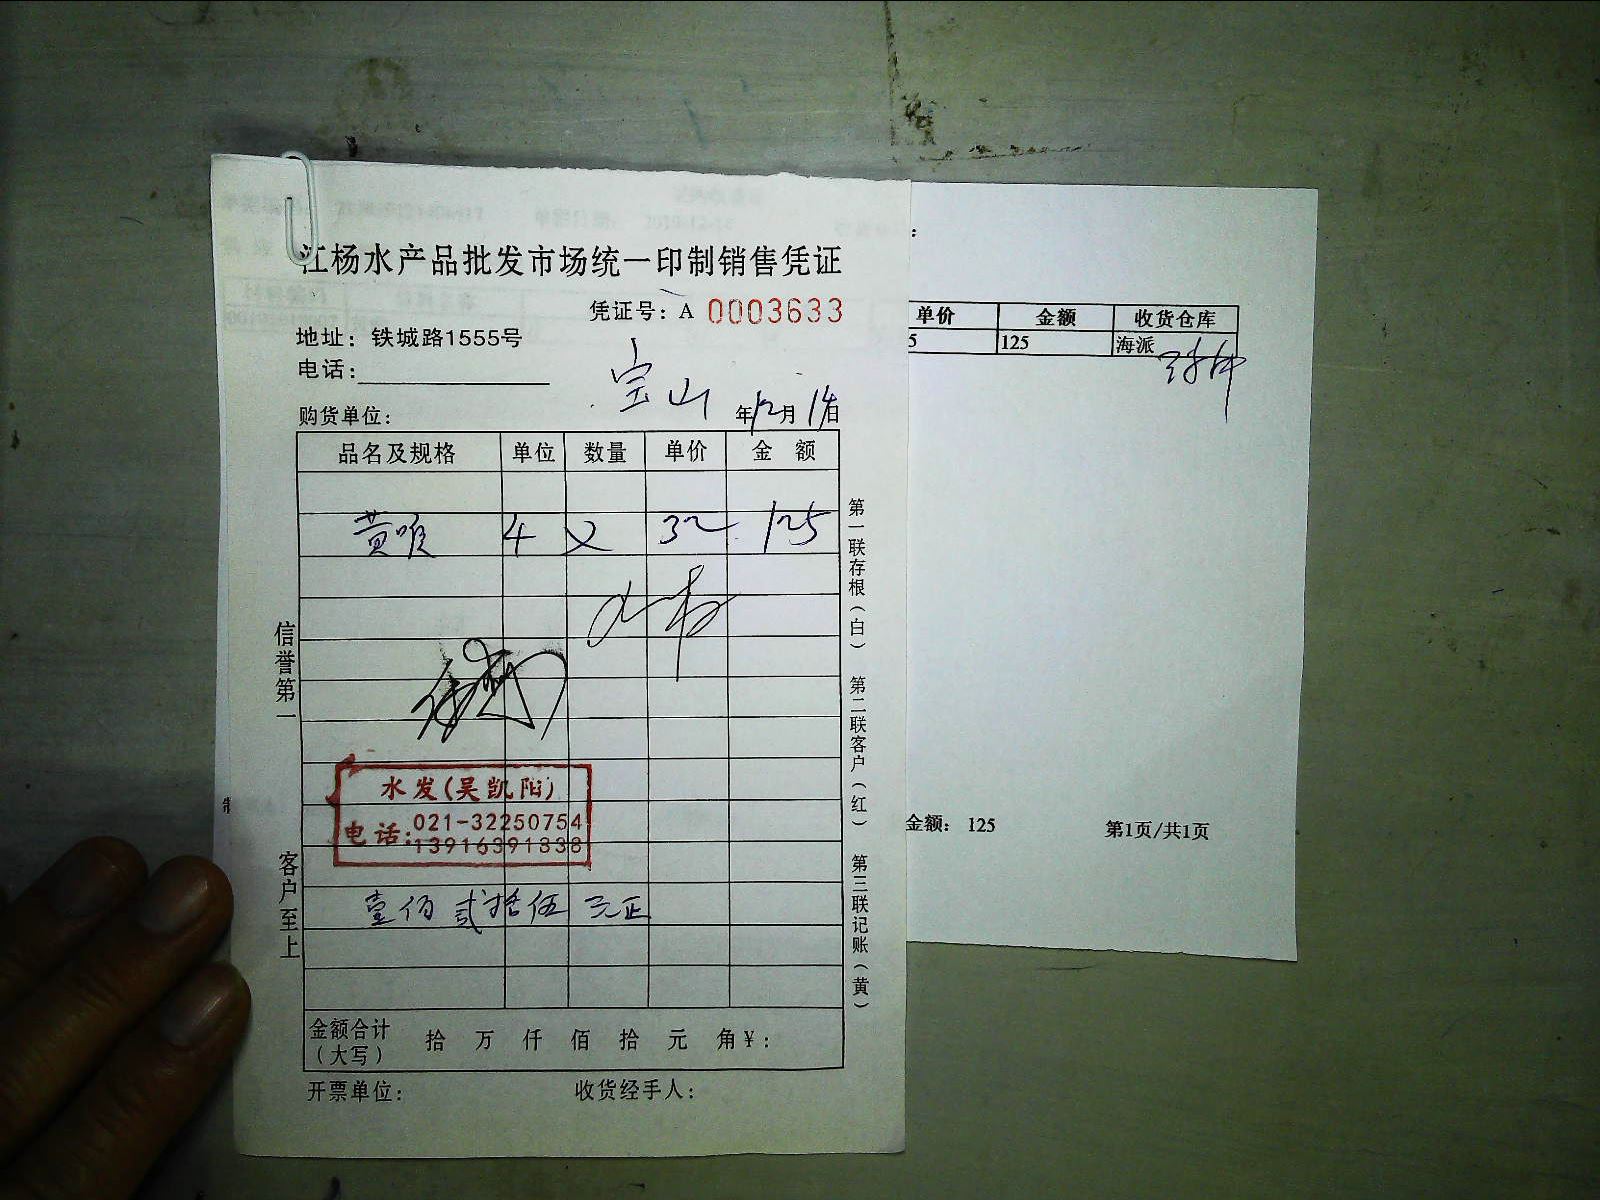 江杨水产品批发市场统一印制销售凭证
凭证号：A 0003633
地址：铁城路1555号
电话：
宝山
购货单位： 年12月14日
品名及规格 单位 数量 单价 金 额
黄喉 4 32 125
水发(吴凯阳)
电话:021-32250754
13916391338
壹佰贰拾伍元正
金额合计（大写） 拾 万 仟 佰 拾 元 角￥：
开票单位： 收货经手人：
信誉第一
客户至上
第一联存根（白） 第二联客户（红） 第三联记账（黄）
：
单价 金额 收货仓库
5 125 海派
金额： 125 第1页/共1页